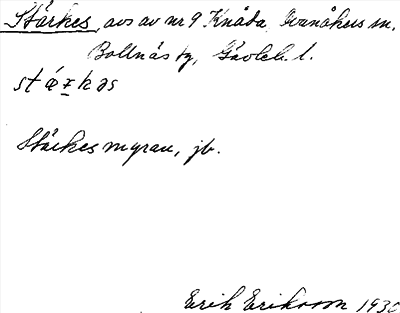 Stärkes, avs av nr 9 Knåda, Ovanåkers sn.
Bollnäs tg, Gävleb. l.
stǽrkəs
Stärkesmyran, jb.
Erik Eriksson 1930